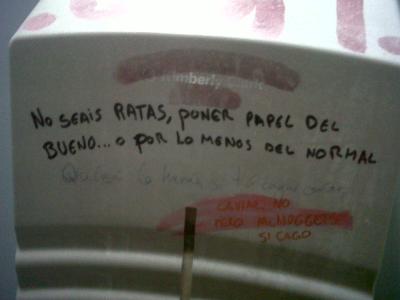 Kimberly Clark
NO SEAIS RATAS, PONER PAPEL DEL
BUENO... O POR LO MENOS DEL NORMAL
CAVIAR NO
PERO McNUGGETSS
SI CAGO